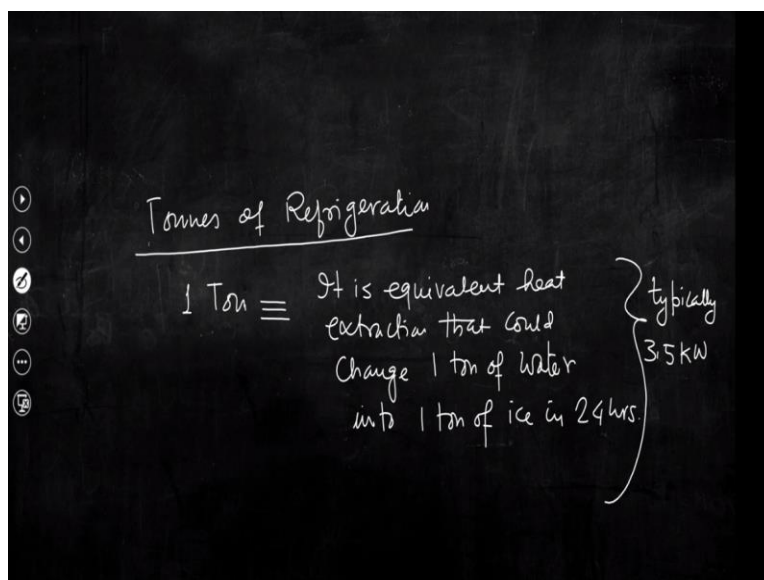 Tonnes of Refrigeration
1 Ton ≡ It is equivalent heat
extraction that could
Change 1 ton of water
into 1 ton of ice in 24 hrs.
typically
3.5 kW